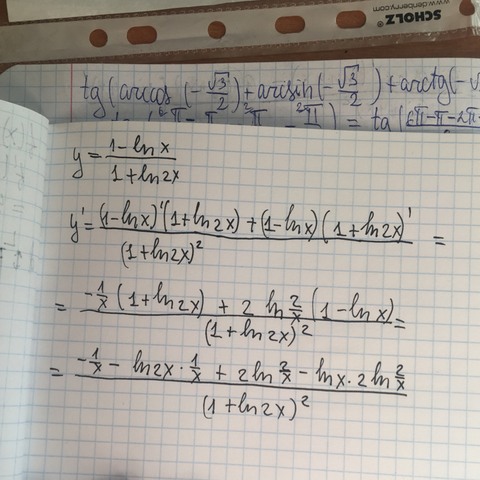 www.denberry.com
SCHOLZ
tg(arccos(-√3/2)+arcsin(-√3/2)+arctg(-√
y = (1-ln x)/(1+ln2x)
y' = ((1-lnx)'(1+ln2x)+(1-lnx)(1+ln2x)')/(1+ln2x)² =
= (-1/x(1+ln2x)+2 ln 2/x(1-lnx))/(1+ln2x)² =
= (-1/x - ln2x·1/x + 2ln 2/x - lnx·2ln 2/x)/(1+ln2x)²